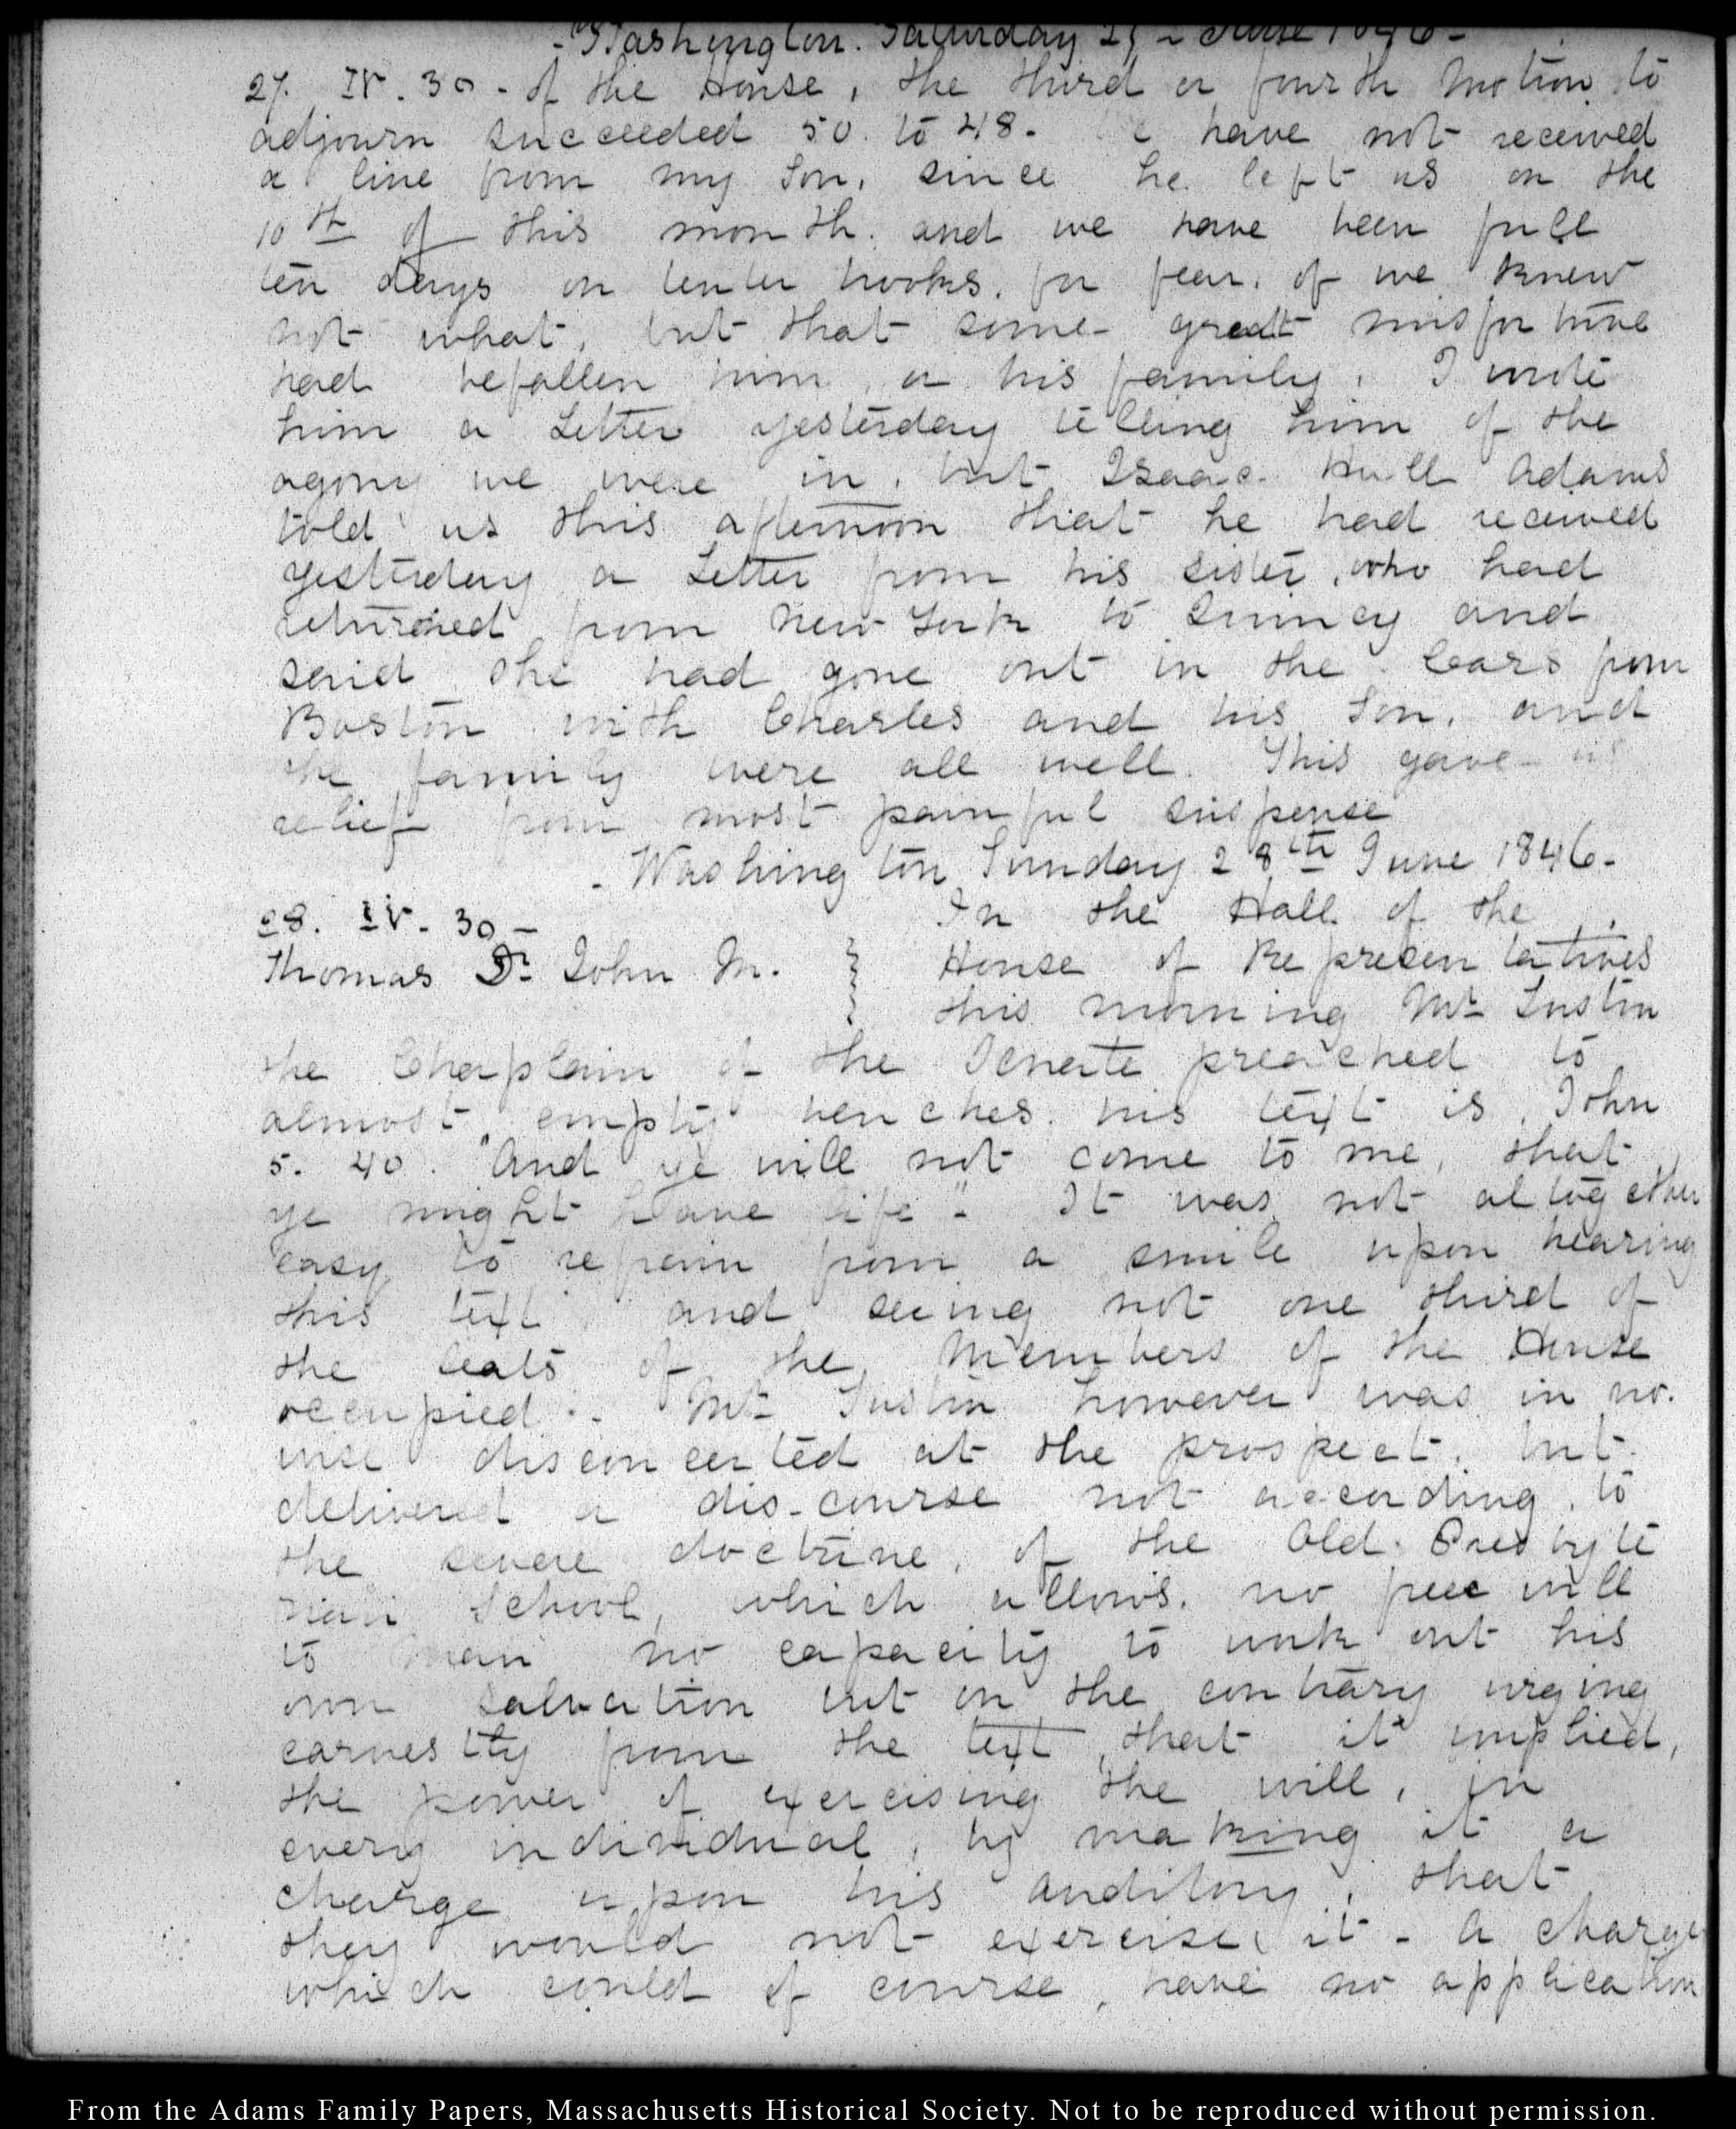 - Washington. Saturday 27 - June 1846 -
27. IV. 30 - of the House, the third or fourth motion to
adjourn succeeded 50 to 48. We have not received
a line from my Son, since he left us on the
10th of this month. and we have been full
ten days on tenter hooks. for fear, of we knew
not what, but that some great misfortune
had befallen him, or his family, I wrote
him a Letter yesterday telling him of the
agony we were in, but Isaac Hull Adams
told us this afternoon that he had received
yesterday a Letter from his sister, who had
returned from New York to Quincy and
said she had gone out in the Cars from
Boston with Charles and his Son, and
the family were all well. This gave us
relief from most painful suspense
- Washington Sunday 28th June 1846 -
28. IV. 30 - In the Hall of the
Thomas Dr John M. } House of Representatives
this morning Mr Tustin
the Chaplain of the Senate preached to
almost empty benches. his text is John
5. 40. "And ye will not come to me, that
ye might have life" - It was not altogether
easy to refrain from a smile upon hearing
this text and seeing not one third of
the seats of the Members of the House
occupied. - Mr Tustin however was in no.
wise disconcerted at the prospect, but
delivered a dis-course not according to
the severe doctrine, of the Old Presbyte
rian School, which allows, no free will
to man no capacity to work out his
own salvation but on the contrary urging
earnestly from the text, that it implied,
the power of exercising the will, in
every individual, by making it a
charge upon his auditory, that
they would not exercise it - A charge
which could of course, have no application
From the Adams Family Papers, Massachusetts Historical Society. Not to be reproduced without permission.